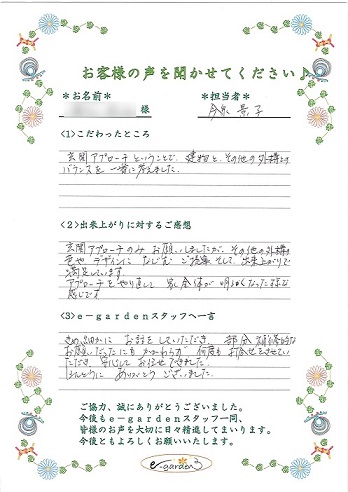 お客様の声を聞かせてください♪
＊お名前＊
＊担当者＊
様
景子
<1>こだわったところ
玄関アプローチということで、建物と、その他の外構との
バランスを一番に考えました。
<2>出来上がりに対するご感想
玄関アプローチのみ お願いしましたが、その他の外構
色や デザインに なじむ ご提案、そして、出来上がりで
満足しています。
アプローチをやり直して 家全体が 明るくなった様な
感じです
<3>e-gardenスタッフへ一言
きめ細かに お話をしていただき、部分 的な
お願いだったにもかかわらず、何度も 打合せをさせてい
ただき、安心して お任せできました。
ほんとうに ありがとう ございました。
ご協力、誠にありがとうございました。
今後もe-gardenスタッフ一同、
皆様のお声を大切に日々精進してまいります。
今後ともよろしくお願いいたします。
e-garden